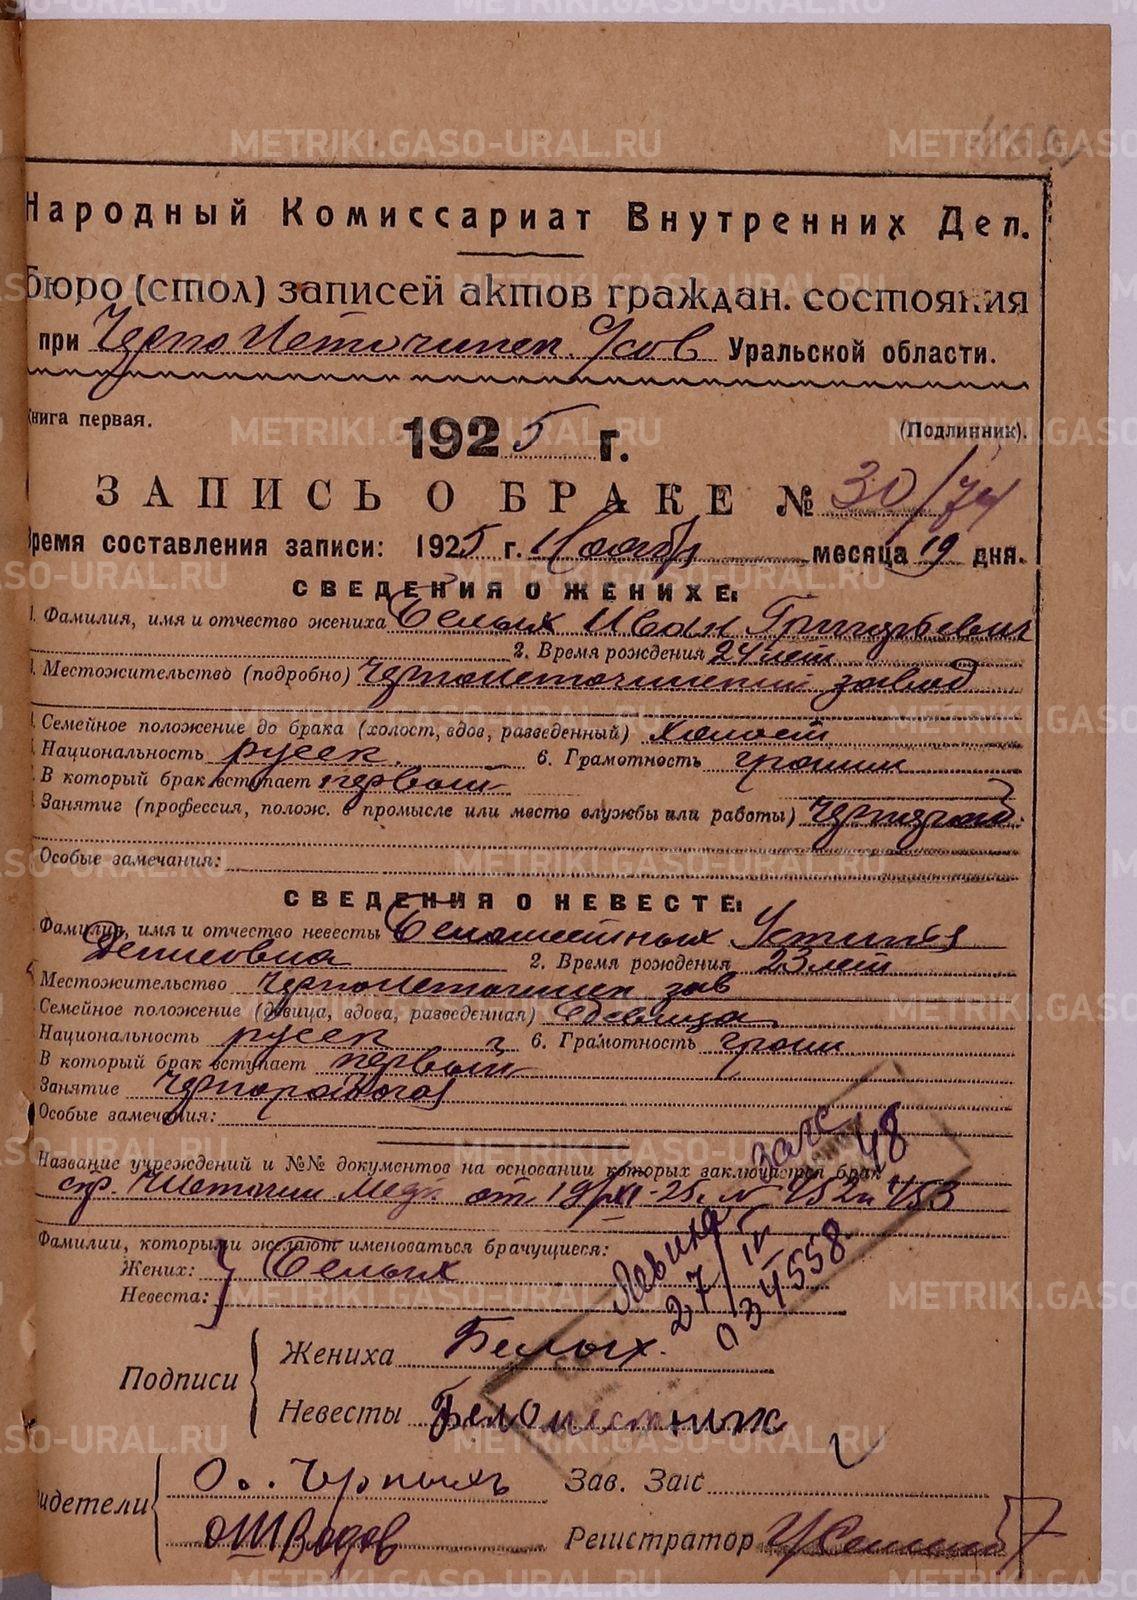 Народный Комиссариат Внутренних Дел.
Бюро (стол) записей актов граждан. состояния
при Черно Источинск. Уральской области.
Книга первая. 1925 г. (Подлинник).
ЗАПИСЬ О БРАКЕ № 30/74
Время составления записи: 1925 г. Ноябр месяца 19 дня.
СВЕДЕНИЯ О ЖЕНИХЕ:
1. Фамилия, имя и отчество жениха Белых Иван Григорьевич
2. Время рождения 24 лет
Местожительство (подробно) Черноисточинский завод
Семейное положение до брака (холост, вдов, разведенный) холост
Национальность русск. 6. Грамотность
В который брак вступает первый
Занятие (профессия, полож. в промысле или место службы или работы)
Особые замечания:
СВЕДЕНИЯ О НЕВЕСТЕ:
Фамилия, имя и отчество невесты Беломестных Устинья
Денисовна 2. Время рождения 23 лет
Местожительство Черноисточинск зав
Семейное положение (девица, вдова, разведенная) девица
Национальность русск 6. Грамотность
В который брак вступает первый
Занятие
Особые замечания:
загс 48
Название учреждений и №№ документов на основании которых заключается брак
спр. от 19/XI-25 г. № 452 и 453
Фамилии, которыми желают именоваться брачущиеся:
Жених: } Белых
Невеста:
27/IV
034558
Подписи
Жениха Белых.
Невесты Беломестных
Свидетели
Зав. Загс
Регистратор